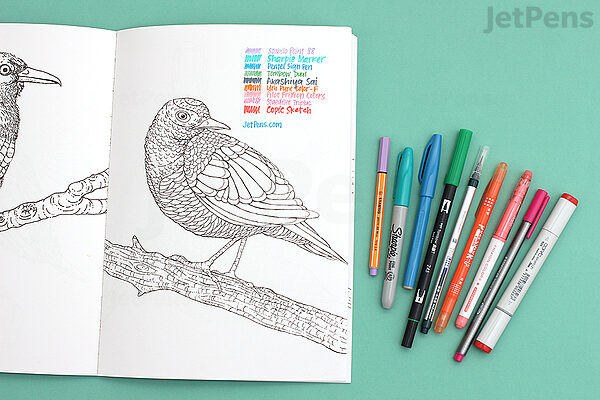 JetPens
Stabilo Point 88
Sharpie Marker
Pentel Sign Pen
Tombow Dual
Akashiya Sai
Uni Pure Color-F
Pilot FriXion Colors
Staedtler Triplus
Copic Sketch
JetPens.com
Sharpie